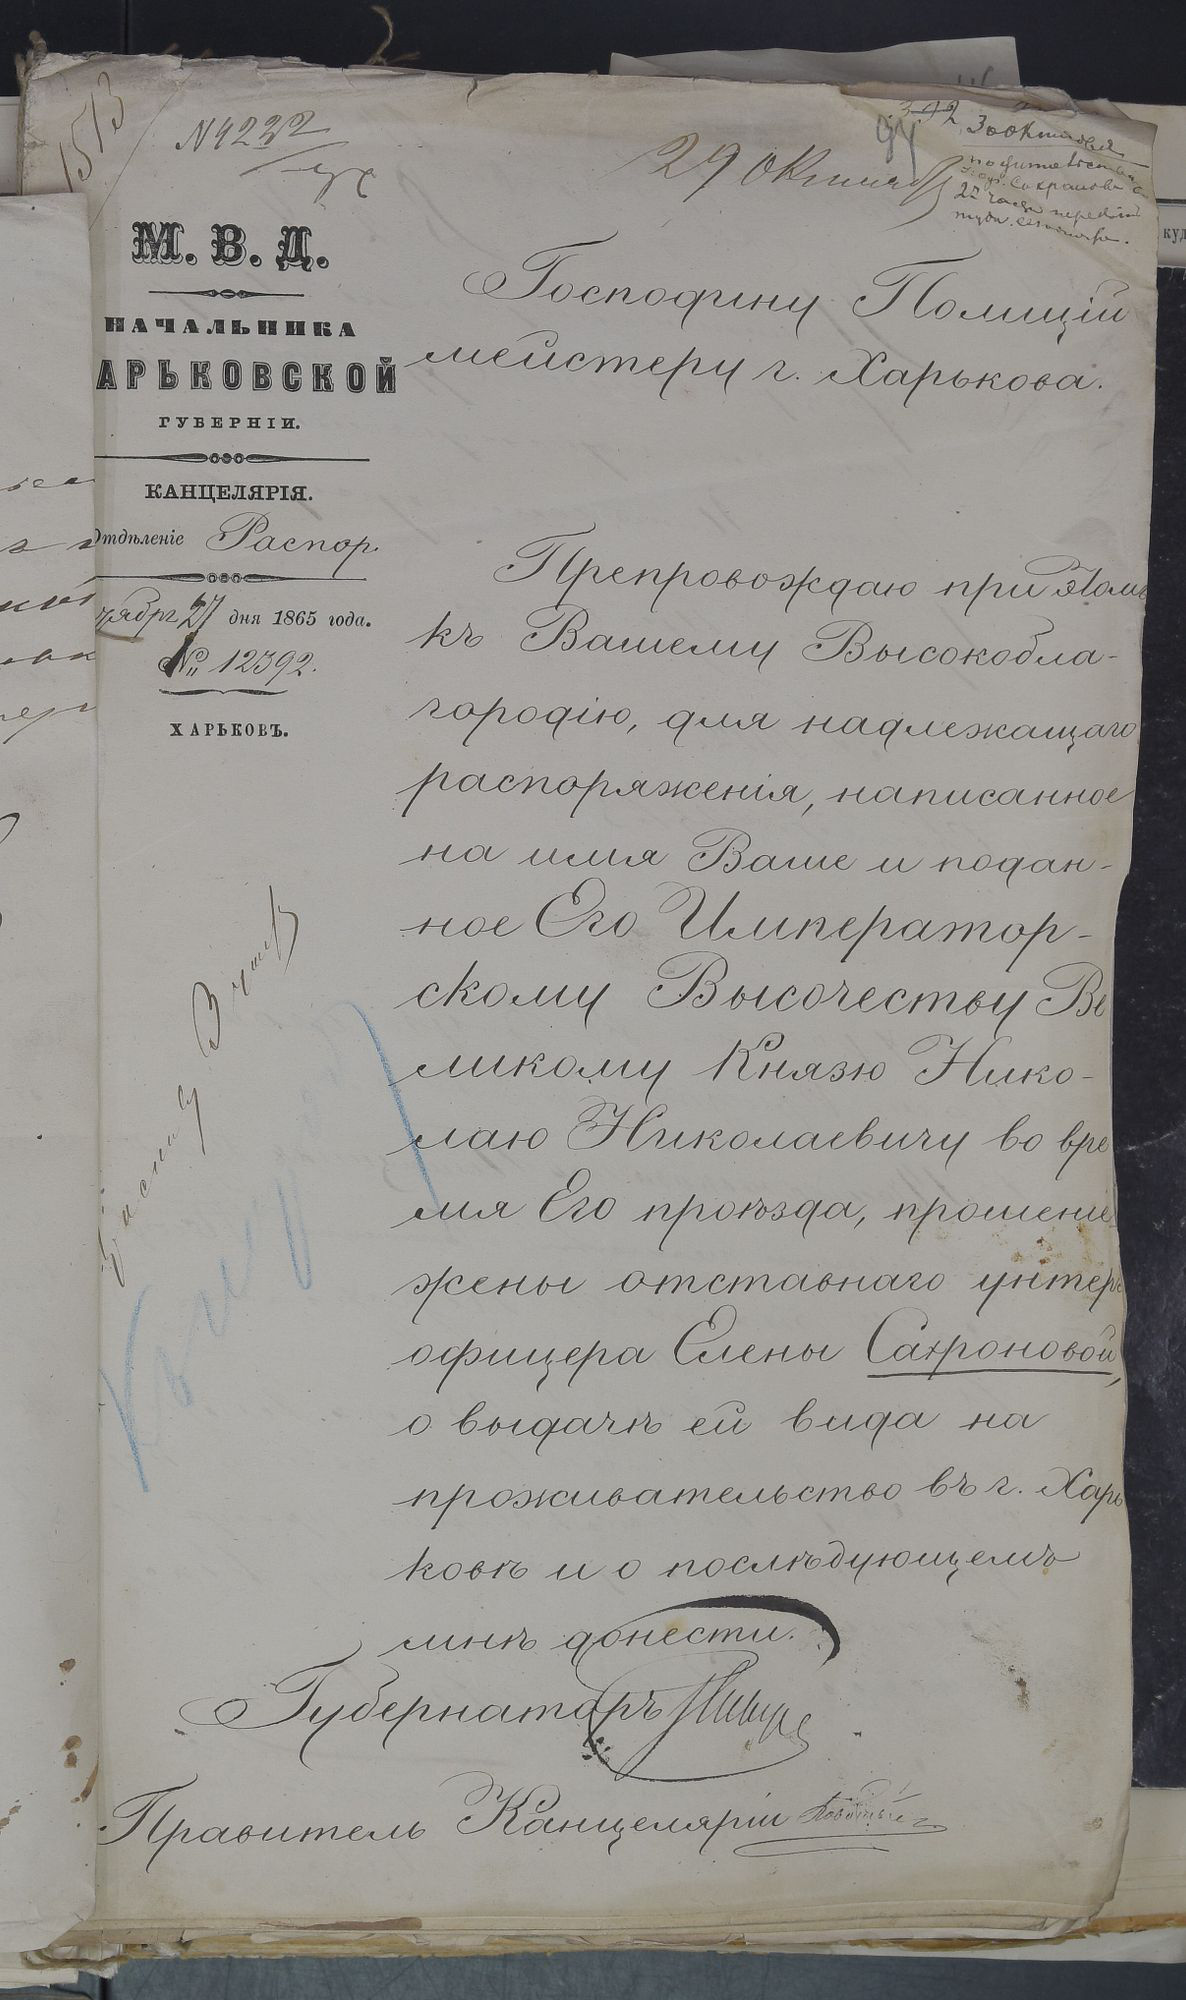 1573
№ 4222
29 Октяб
392
М. В. Д.
НАЧАЛЬНИКА
АРЬКОВСКОЙ
ГУБЕРНІИ.
КАНЦЕЛЯРІЯ.
Отдѣленіе Распор.
27 дня 1865 года.
№ 12392.
ХАРЬКОВЪ.
Господину Полиций
мейстеру г. Харькова.
Препровождаю при этомъ
къ Вашему Высокобла-
городію, для надлежащаго
распоряженія, написанное
на имя Ваше и подан-
ное Его Император-
скому Высочеству Ве
ликому Князю Нико-
лаю Николаевичу во вре
мя Его проѣзда, прошеніе
жены отставнаго унтеръ
офицера Елены Сафроновой,
о выдачѣ ей вида на
проживательство въ г. Харь
ковѣ и о послѣдующемъ
мнѣ донести.
Губернаторъ
Правитель Канцеляріи